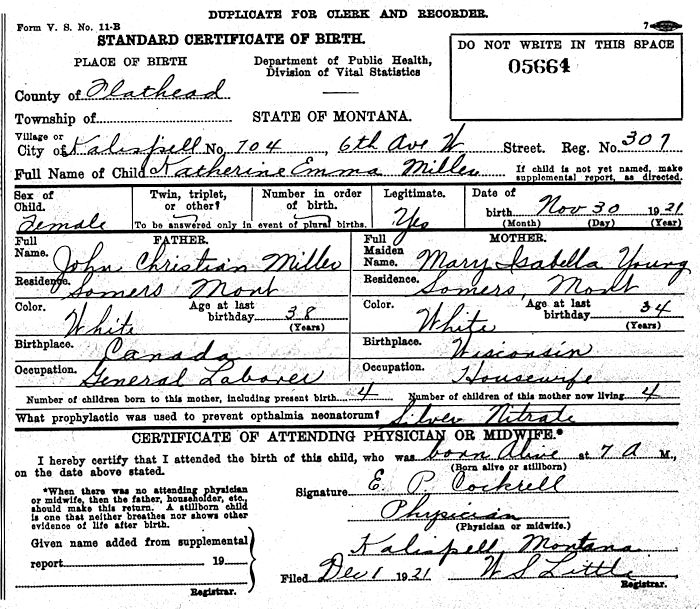 DUPLICATE FOR CLERK AND RECORDER.
Form V. S. No. 11-B
7
STANDARD CERTIFICATE OF BIRTH.
DO NOT WRITE IN THIS SPACE
05664
PLACE OF BIRTH
Department of Public Health,
Division of Vital Statistics
County of Flathead
Township of STATE OF MONTANA.
Village or
City of Kalispell No. 704, 6th Ave W Street. Reg. No. 307
Full Name of Child Katherine Emma Miller If child is not yet named, make supplemental report, as directed.
Sex of Child. Female
Twin, triplet, or other?
Number in order of birth.
To be answered only in event of plural births.
Legitimate. Yes
Date of birth Nov 30 1921
(Month) (Day) (Year)
FATHER.
Full Name. John Christian Miller
MOTHER.
Full Maiden Name. Mary Isabella Young
Residence. Somers Mont
Residence. Somers, Mont
Color. White Age at last birthday 38 (Years)
Color. White Age at last birthday 34 (Years)
Birthplace. Canada
Birthplace. Wisconsin
Occupation. General Laborer
Occupation. Housewife
Number of children born to this mother, including present birth 4 Number of children of this mother now living 4
What prophylactic was used to prevent opthalmia neonatorum? Silver Nitrate
CERTIFICATE OF ATTENDING PHYSICIAN OR MIDWIFE.*
I hereby certify that I attended the birth of this child, who was born alive at 7 A M.,
(Born alive or stillborn)
on the date above stated.
*When there was no attending physician
or midwife, then the father, householder, etc.,
should make this return. A stillborn child
is one that neither breathes nor shows other
evidence of life after birth.
Signature E. P. Cockrell
Physician
(Physician or midwife.)
Given name added from supplemental
report 19
Registrar.
Kalispell, Montana
Filed Dec 1 1921 W S Little
Registrar.